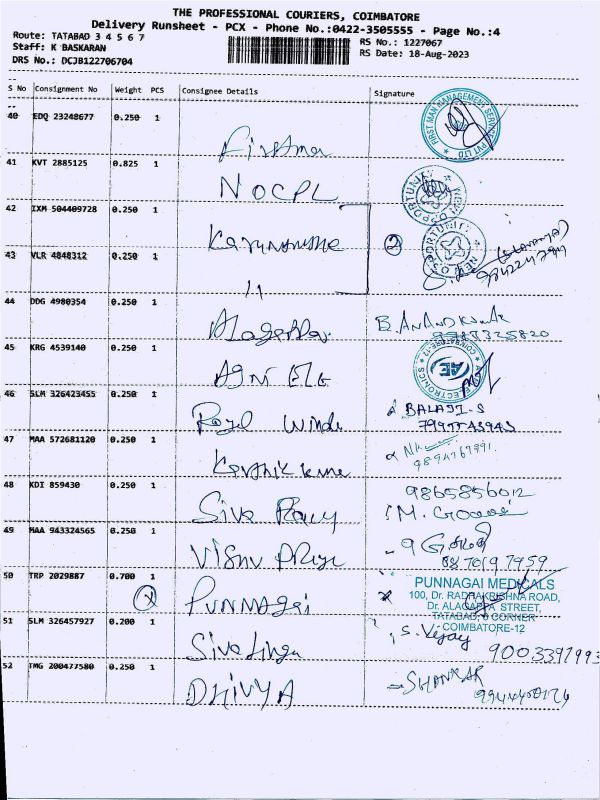 THE PROFESSIONAL COURIERS, COIMBATORE
Delivery Runsheet - PCX - Phone No.:0422-3505555 - Page No.:4
Route: TATABAD 3 4 5 6 7
RS No.: 1227067
Staff: K BASKARAN
RS Date: 18-Aug-2023
DRS No.: DCJB122706704
S No Consignment No Weight PCS Consignee Details Signature
40 EDQ 23248677 0.250 1
FIRST MAN MANAGEMENT SERVICES PVT LTD
41 KVT 2885125 0.825 1
NOCPL
42 IXM 504409728 0.250 1
2
43 VLR 4848312 0.250 1
11
44 DDG 4980354 0.250 1
B. ANANDKUMAR
45 KRG 4539140 0.250 1
AGNI ELE
AE ELECTRONICS COIMBATORE-12
46 SLM 326423455 0.250 1
Royal Winde
BALAJI. S
47 MAA 572681120 0.250 1
Karthik
48 KDI 859430 0.250 1
9865856012
Siva
M.
49 MAA 943324565 0.250 1
VISNU PRIYA
50 TRP 2029887 0.700 1
PUNNAGAI
PUNNAGAI MEDICALS
100, Dr. RADHAKRISHNA ROAD,
Dr. ALAGAPPA STREET,
TATABAD, 6 CORNER
COIMBATORE-12
51 SLM 326457927 0.200 1
Sivalinga
S. Vijay
52 TMG 200477580 0.250 1
DHIVYA
SHANKAR